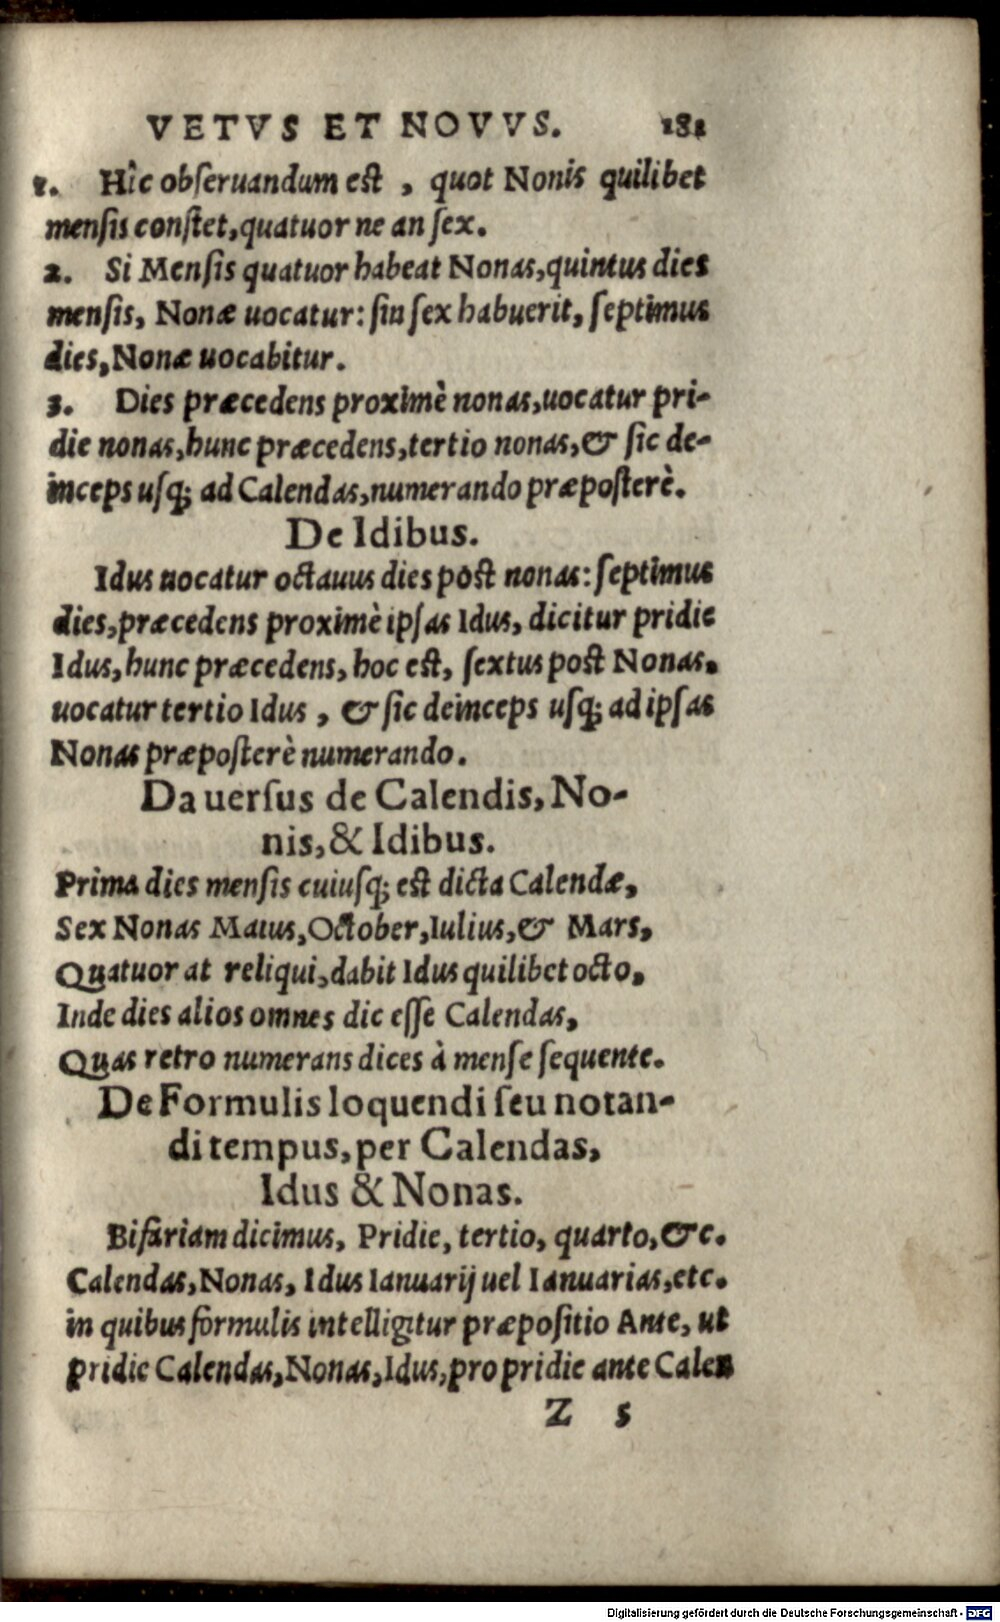 VETVS ET NOVVS. 181
1. Hîc obſeruandum eſt , quot Nonis quilibet
menſis conſtet, quatuor ne an ſex.
2. Si Menſis quatuor habeat Nonas, quintus dies
mensis, Nonæ uocatur: ſin ſex habuerit, ſeptimus
dies, Nonæ uocabitur.
3. Dies præcedens proximè nonas, uocatur pri-
die nonas, hunc præcedens, tertio nonas, & ſic de-
inceps uſq; ad Calendas, numerando præpoſterè.
De Idibus.
Idus uocatur octauus dies poſt nonas: ſeptimus
dies, præcedens proximè ipſas Idus, dicitur pridie
Idus, hunc præcedens, hoc eſt, ſextus poſt Nonas.
uocatur tertio Idus , & ſic deinceps uſq; ad ipſas
Nonas præpoſterè numerando.
Da uerſus de Calendis, No-
nis, & Idibus.
Prima dies menſis cuiuſq; eſt dicta Calendæ,
Sex Nonas Maius, October, Iulius, & Mars,
Quatuor at reliqui, dabit Idus quilibet octo.
Inde dies alios omnes dic eſſe Calendas,
Quas retro numerans dices à menſe ſequente.
De Formulis loquendi ſeu notan-
di tempus, per Calendas,
Idus & Nonas.
Bifariam dicimus, Pridie, tertio, quarto, &c.
Calendas, Nonas, Idus Ianuarij uel Ianuarias, etc.
in quibus formulis intelligitur præpoſitio Ante, ut
pridie Calendas, Nonas, Idus, pro pridie ante Calen
Z 5
Digitalisierung gefördert durch die Deutsche Forschungsgemeinschaft - DFG